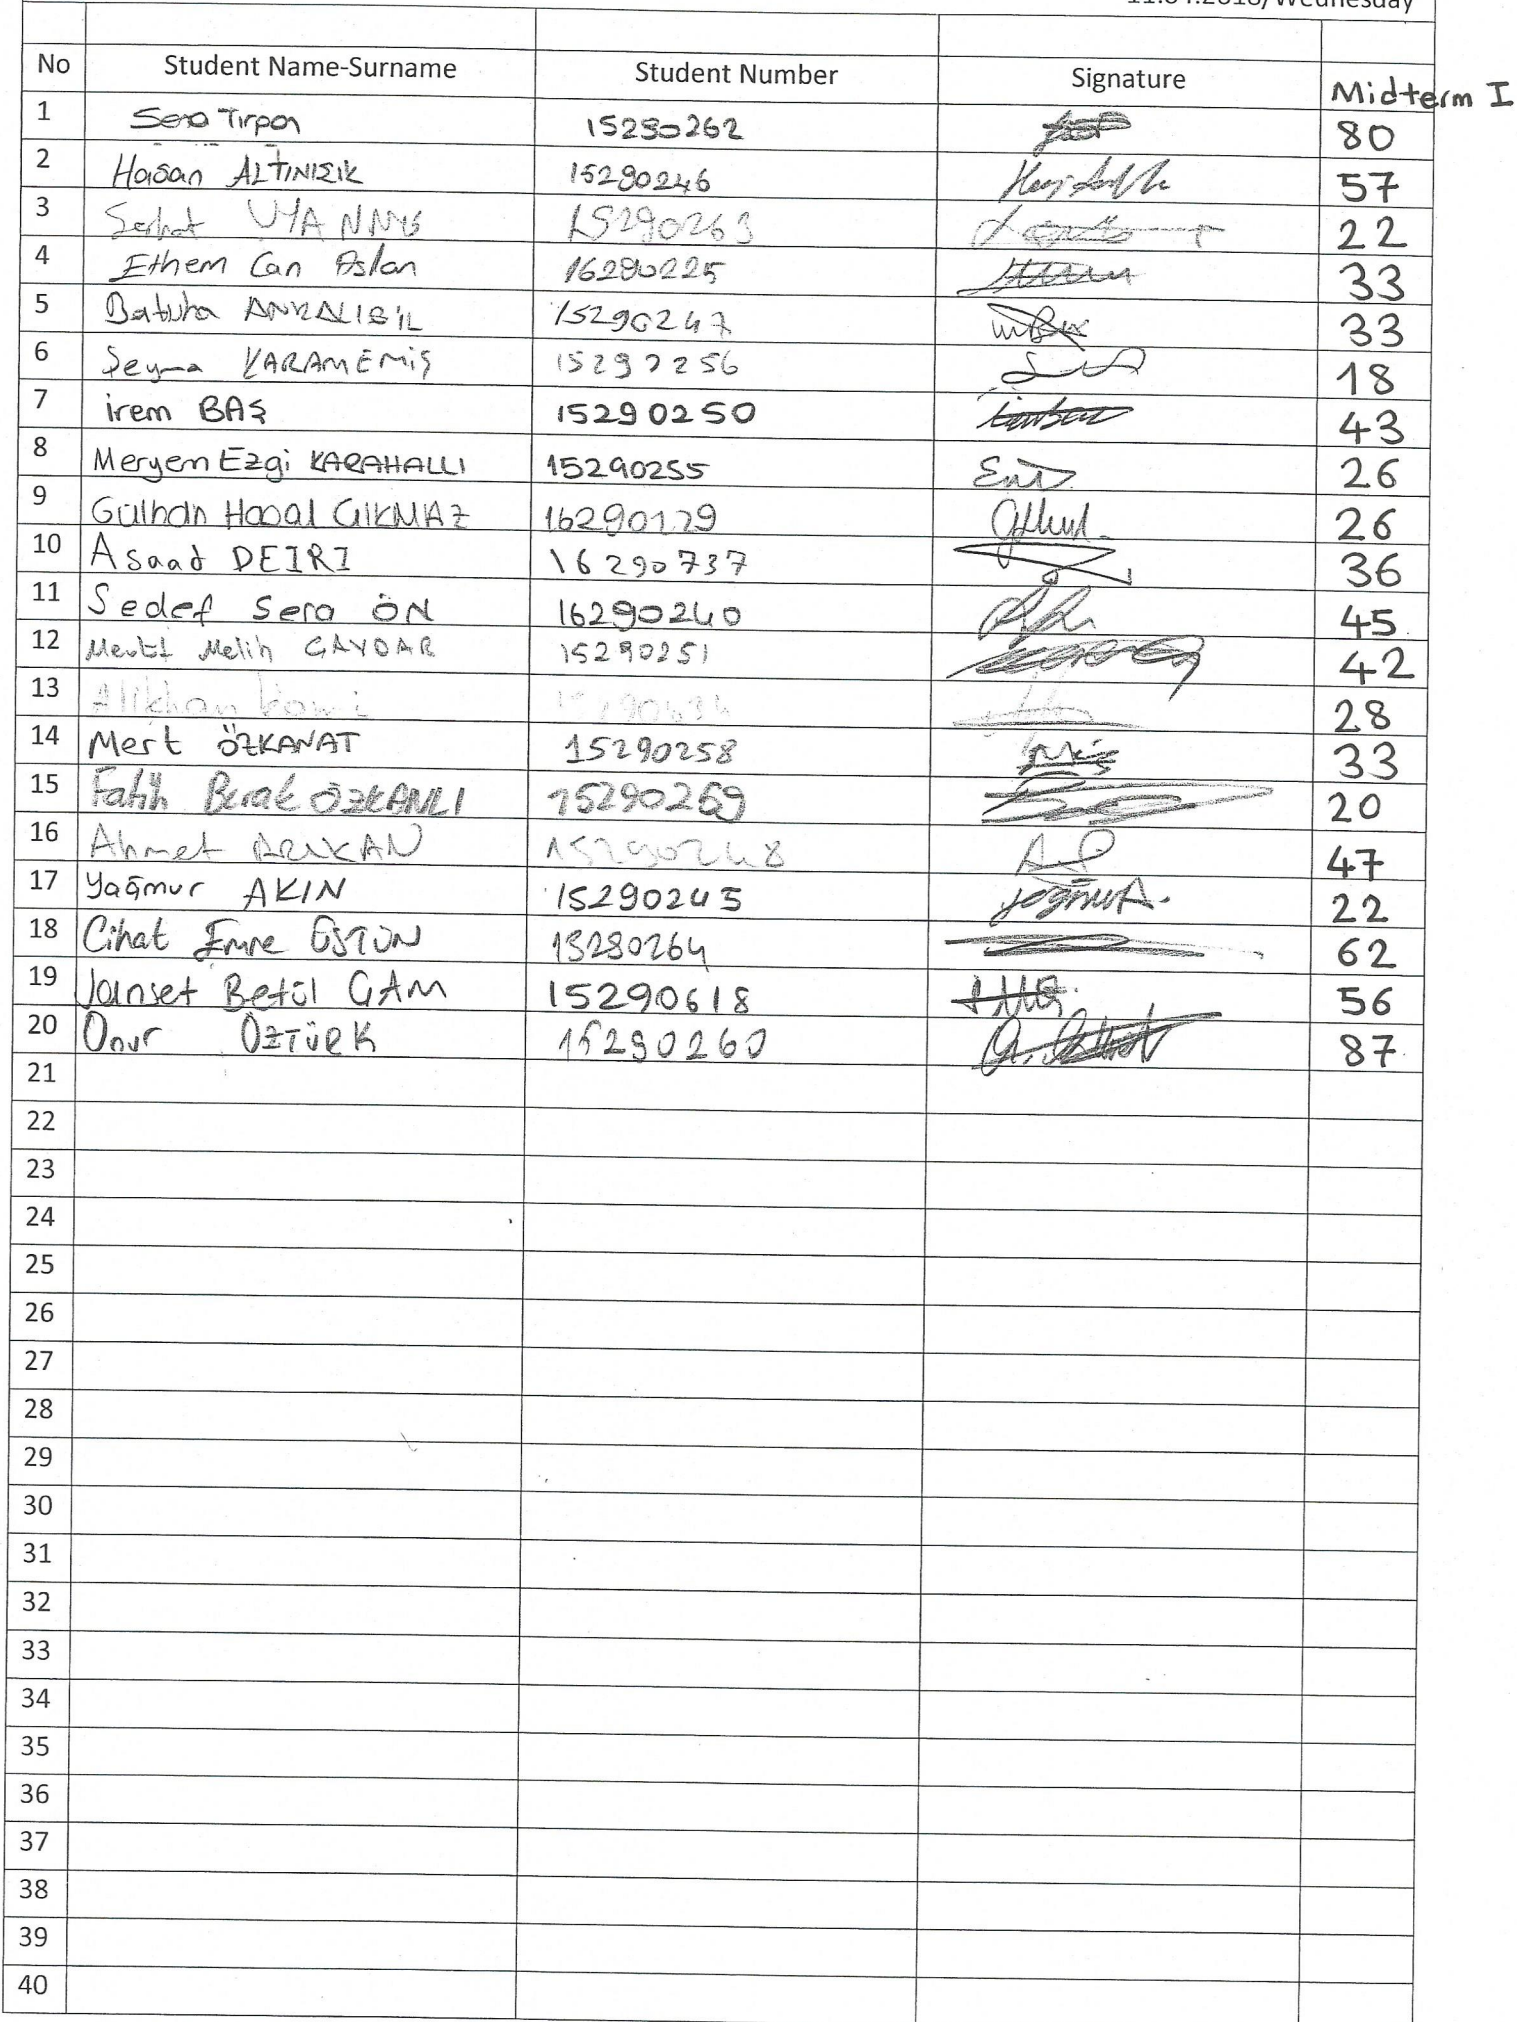 11.04.2018/Wednesday
No Student Name-Surname Student Number Signature Midterm I
1 Sera Tırpan 15290262 80
2 Hasan ALTINIŞIK 15290246 57
3 Serhat UYANMIŞ 15290263 22
4 Ethem Can Aslan 16290225 33
5 Batuha ANKALIGİL 15290247 33
6 Şeyma KARAMEMİŞ 15290256 18
7 irem BAŞ 15290250 43
8 Meryem Ezgi KARAHALLI 15290255 26
9 Gülhan Hazal ÇIKMAZ 16290129 26
10 Asaad DEIRI 16290737 36
11 Sedef Sera ÖN 16290240 45
12 Melih ÇAYDAR 15290251 42
13 Alikhan 28
14 Mert ÖZKANAT 15290258 33
15 Fatih Berat ÖZKANLI 15290259 20
16 Ahmet ARIKAN 15290248 47
17 Yağmur AKIN 15290245 22
18 Cihat Emre ÜSTÜN 15290264 62
19 Janset Betül ÇAM 15290618 56
20 Onur ÖZTÜRK 15290260 87
21
22
23
24
25
26
27
28
29
30
31
32
33
34
35
36
37
38
39
40